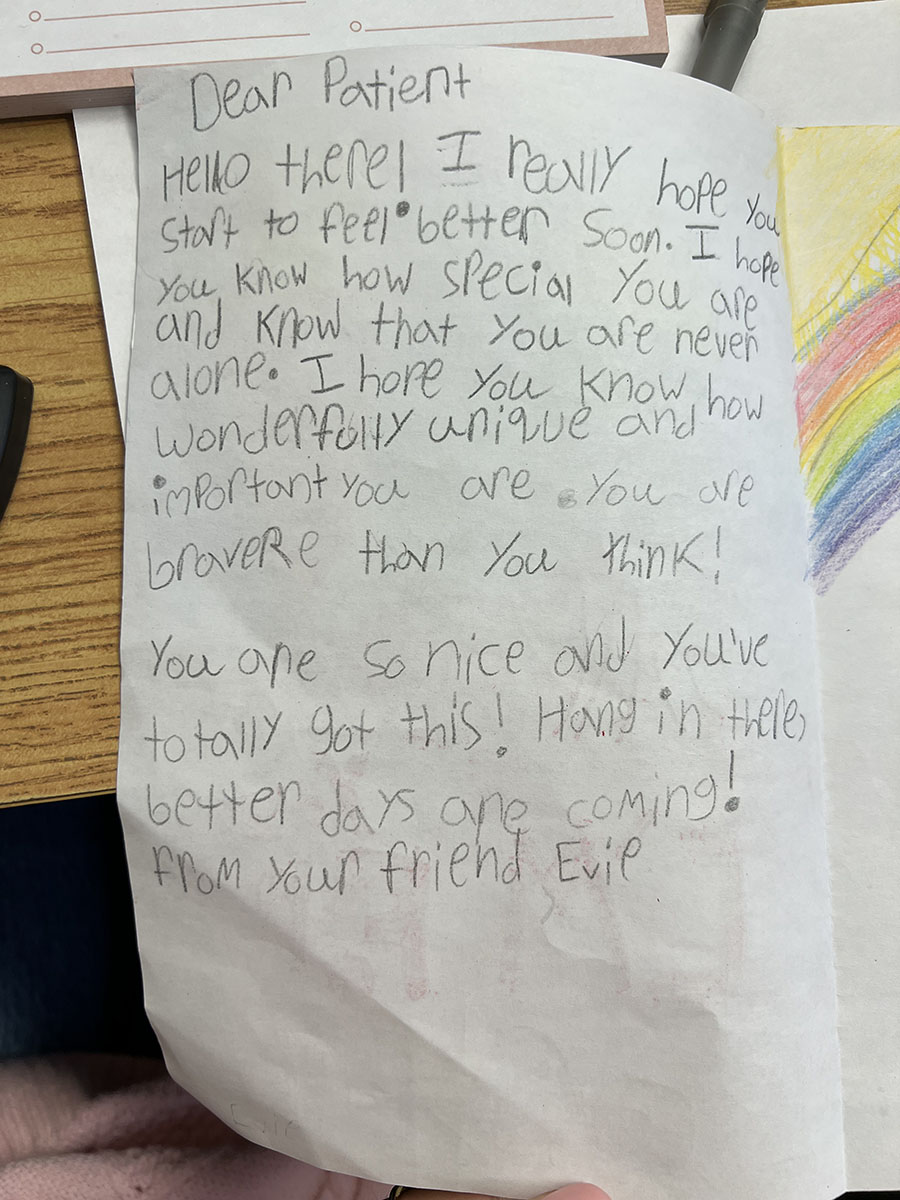 Dear Patient
Hello there! I really hope you
start to feel better soon. I hope
you know how special you are
and know that you are never
alone. I hope you know how
wonderfully unique and how
important you are. You are
bravere than you think!
You are so nice and you've
totally got this! Hang in there,
better days are coming!
from your friend Evie